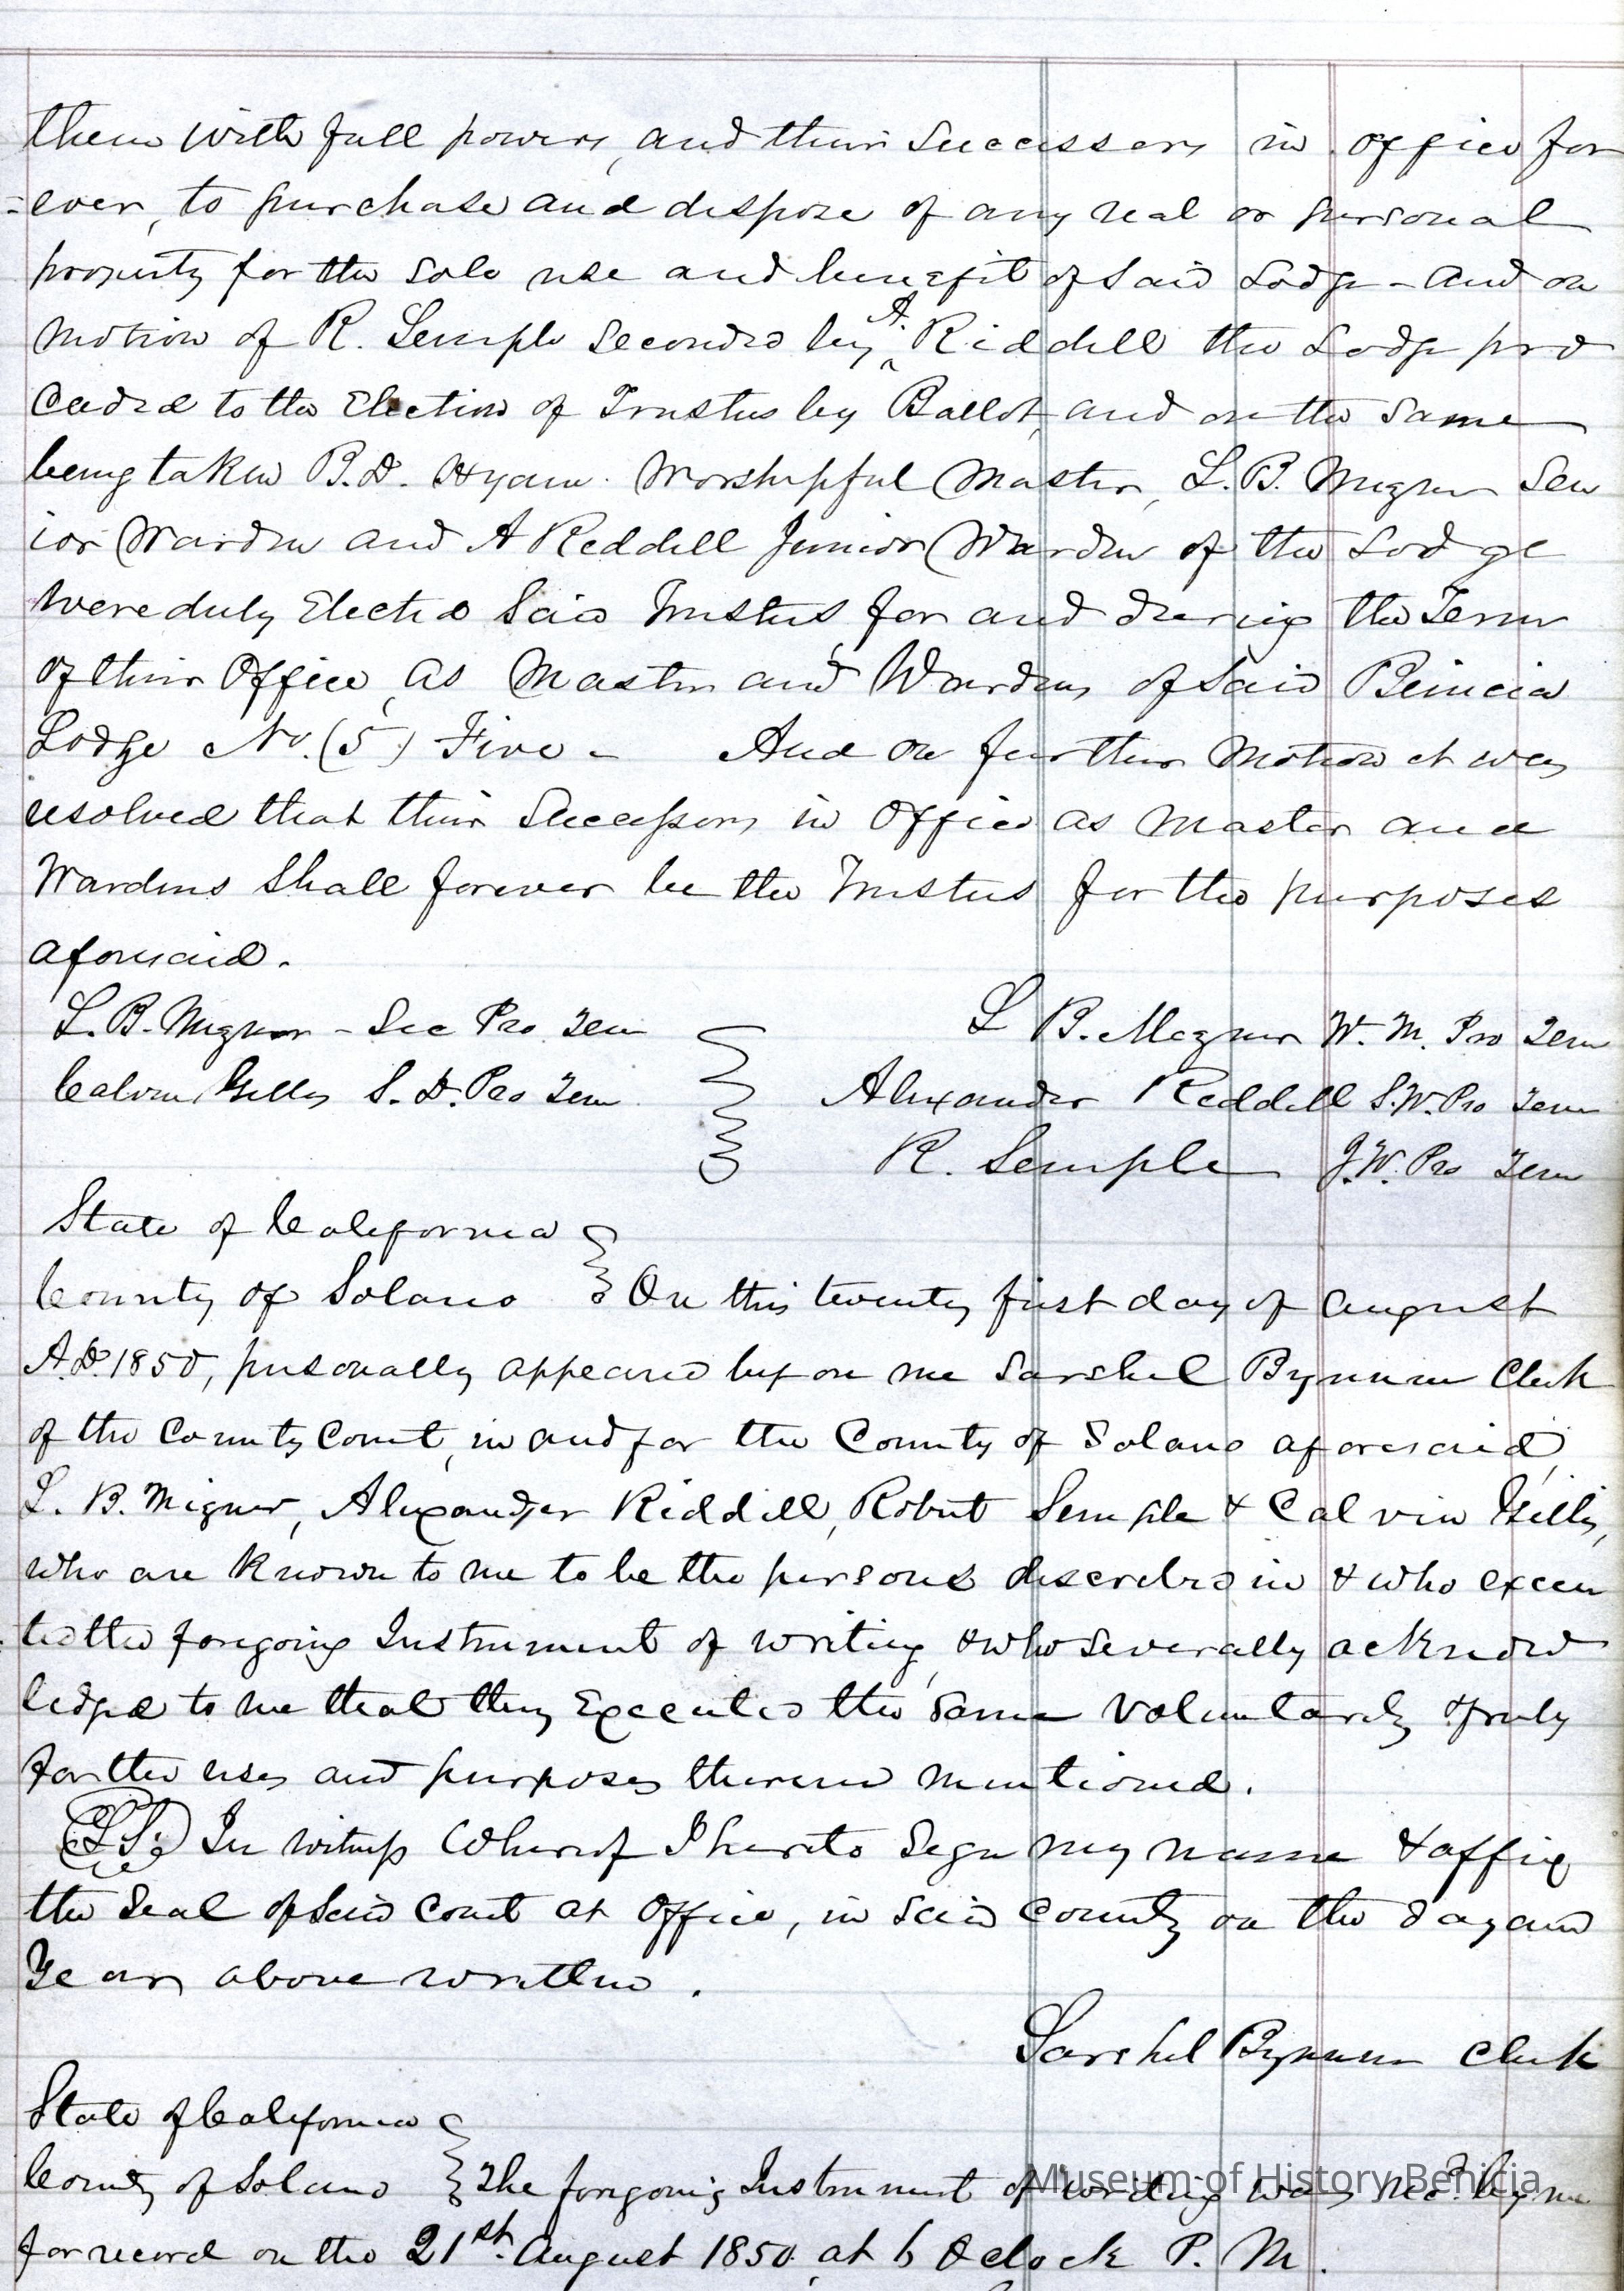 them with full powers, and their Successors in office for
=ever, to purchase and dispose of any real or personal
property for the sole use and benefit of said Lodge - And on
motion of R. Semple Seconded by A. Riddell the Lodge pro
ceeded to the Election of Trustees by Ballot, and on the same
being taken B.D. Hyam. Worshipful Master, L.B. Mizner Sen
ior Warden and A Riddell Junior Warden of the Lodge
were duly Elected Said Trustees for and during the Term
of their Office, as Master and Wardens of Said Benicia
Lodge No. (5) Five - And on further Motion it was
resolved that their Successors in Office as Master and
Wardens Shall forever be the Trustees for the purposes
aforesaid.
L. B. Mizner - Sec Pro Tem
L B. Mizner W. M. Pro Tem
Calvin Gillis S. D. Pro Tem
Alexander Riddell S.W. Pro Tem
R. Semple J.W. Pro Tem
State of California
County of Solano On this twenty first day of August
A.D. 1850, personally appeared before me Sarshel Bynum Clerk
of the County Court, in and for the County of Solano aforesaid,
L. B. Mizner, Alexander Riddell, Robert Semple & Calvin Gillis,
who are known to me to be the persons described in & who execu
ted the foregoing Instrument of writing, & who severally acknow
ledged to me that they Executed the same voluntarily & freely
for the uses and purposes therein mentioned.
L.S. In witness Whereof I hereto Sign my name & affix
the Seal of Said Court at Office, in Said County on the day and
Year above written.
Sarshel Bynum Clerk
State of California
County of Solano The foregoing Instrument of writing was Rec.d by me
for record on the 21st. August 1850. at 6 Oclock P. M.
Museum of History Benicia